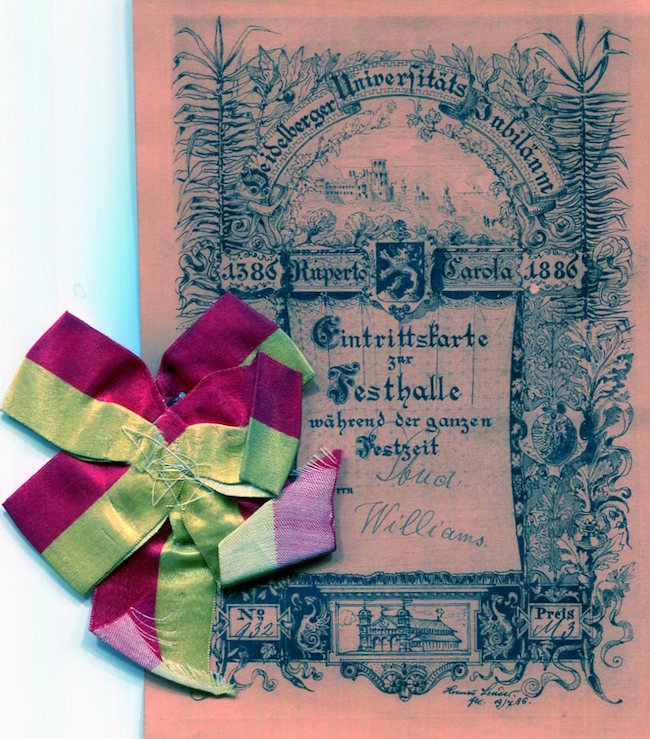 Heidelberger Universitäts Jubiläum
1386 Ruperto Carola 1886
Eintrittskarte
zur
Festhalle
während der ganzen
Festzeit
Stud.
Williams.
No
Preis
19/7.86.